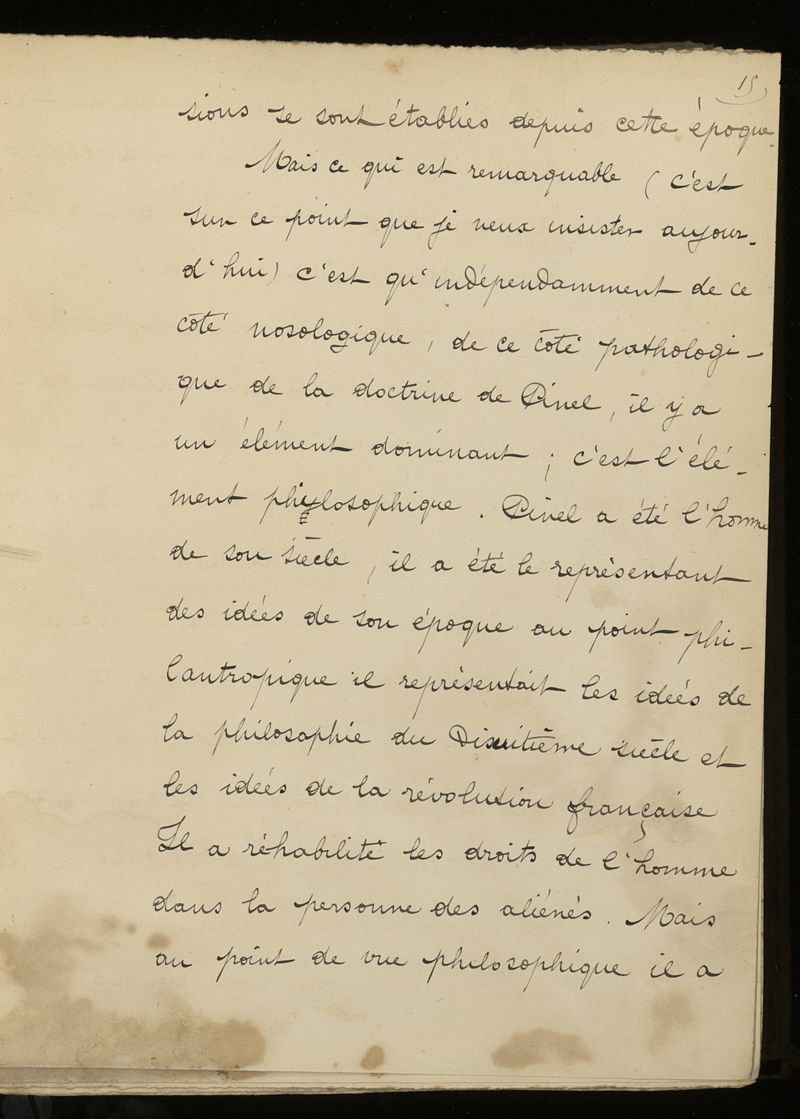 15
sions se sont établies depuis cette époque.
Mais ce qui est remarquable (c'est
sur ce point que je veux insister aujour-
d'hui) c'est qu'indépendamment de ce
côté nosologique, de ce côté pathologi-
que de la doctrine de Pinel, il y a
un élément dominant ; c'est l'élé-
ment phylosophique. Pinel a été l'homme
de son siècle, il a été le représentant
des idées de son époque au point phi-
lantropique il représentait les idées de
la philosophie du Dixuitième siècle et
les idées de la révolution française
Il a réhabilité les droits de l'homme
dans la personne des aliénés. Mais
au point de vue philosophique il a